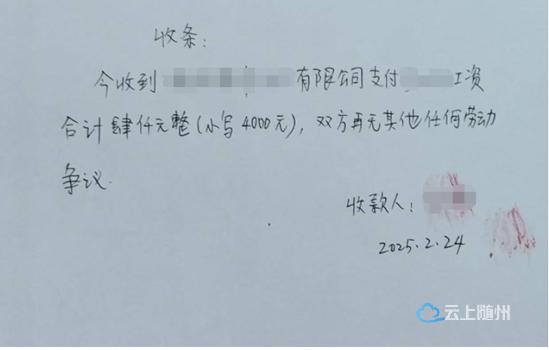 收条：
今收到 有限公司支付 工资
合计肆仟元整(小写4000元)，双方再无其他任何劳动
争议.
收款人：
2025.2.24
云上随州